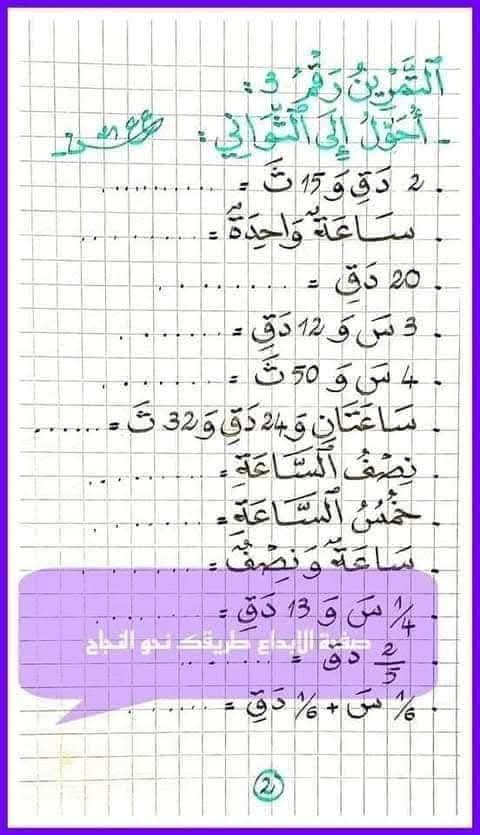 اَلتَّمْرِينُ رَقْمُ 3 :
- أُحَوِّلُ إِلَى الثَّوَانِي :
. 2 دَقِ وَ 15 ثَ = ..........
. سَاعَةٌ وَاحِدَةٌ = ........
. 20 دَقِ = ........
. 3 سَ وَ 12 دَقِ = .......
. 4 سَ وَ 50 ثَ = ........
. سَاعَتَانِ وَ 24 دَقِ وَ 32 ثَ = ......
. نِصْفُ السَّاعَةِ = ........
. خُمْسُ السَّاعَةِ = ........
. سَاعَةٌ وَنِصْفٌ = ........
. 1/4 سَ وَ 13 دَقِ = ........
صفحة الإبداع طريقك نحو النجاح
. 2/5 دَقِ = ........
. 1/6 سَ + 1/6 دَقِ = ........
2